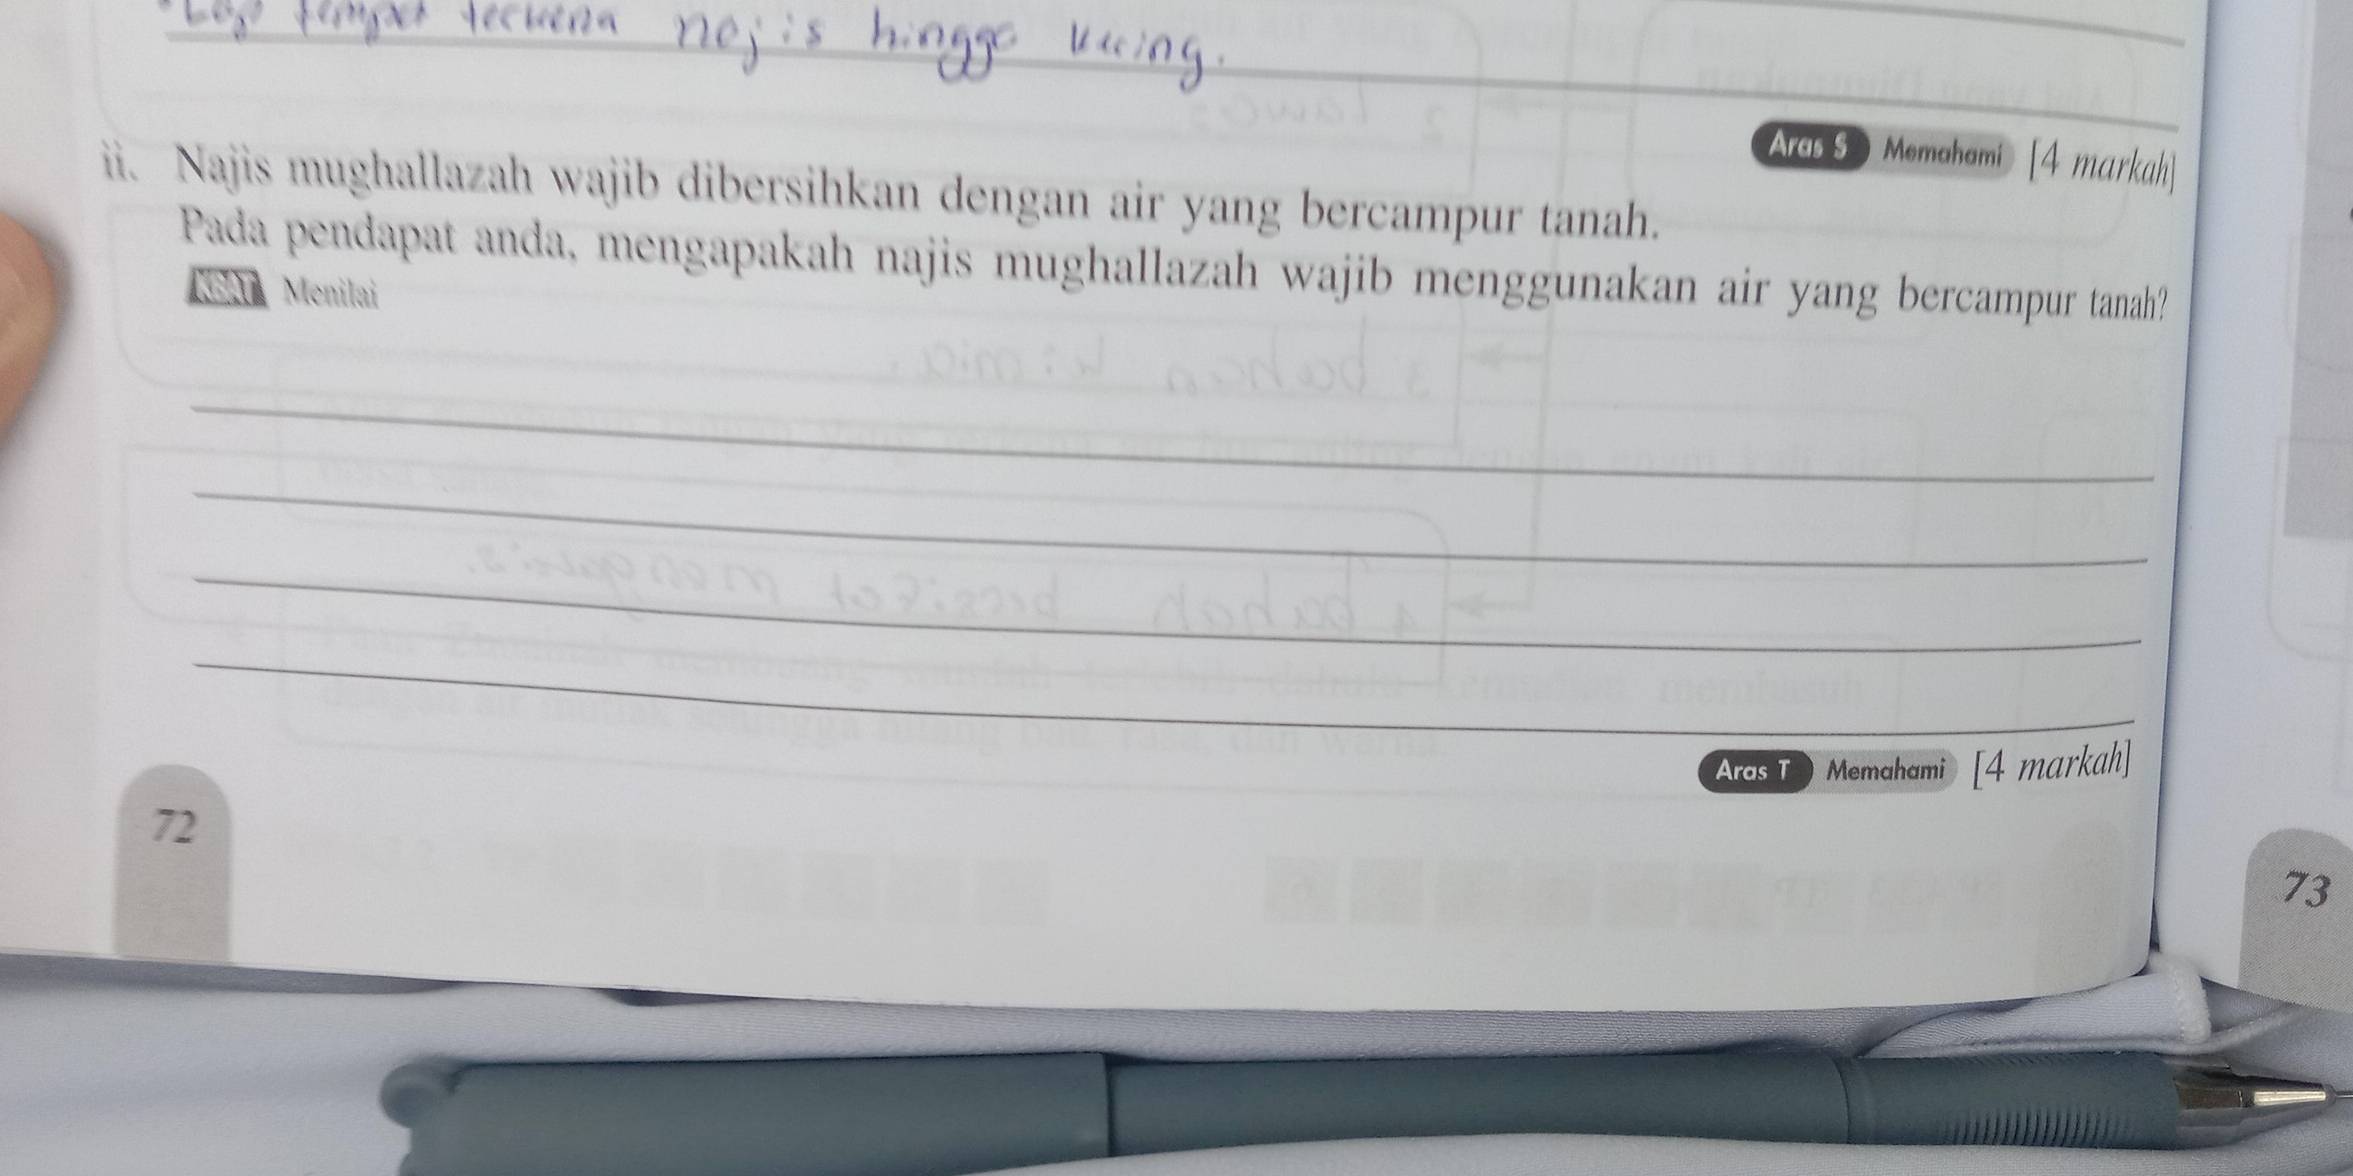 tempat terkena najis hingga kering.
Aras S Memahami [4 markah]
ii. Najis mughallazah wajib dibersihkan dengan air yang bercampur tanah.
Pada pendapat anda, mengapakah najis mughallazah wajib menggunakan air yang bercampur tanah?
KBAT Menilai
Aras T Memahami [4 markah]
72
73